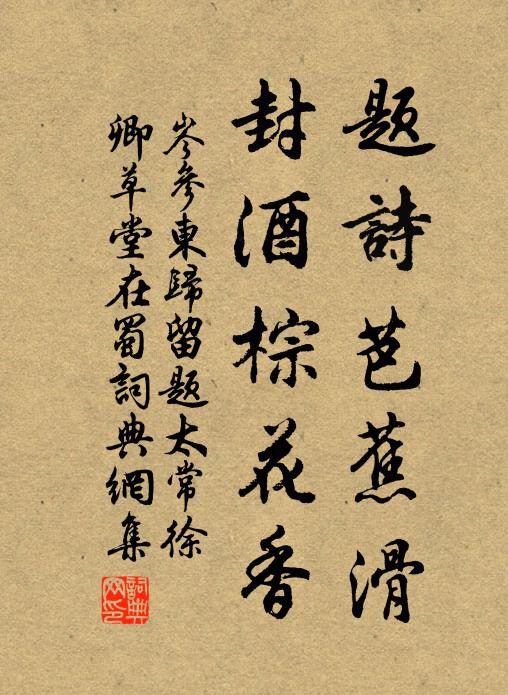 題詩芭蕉滑
封酒棕花香
岑參東歸留題太常徐
卿草堂在蜀詞典網集
詞典
网印